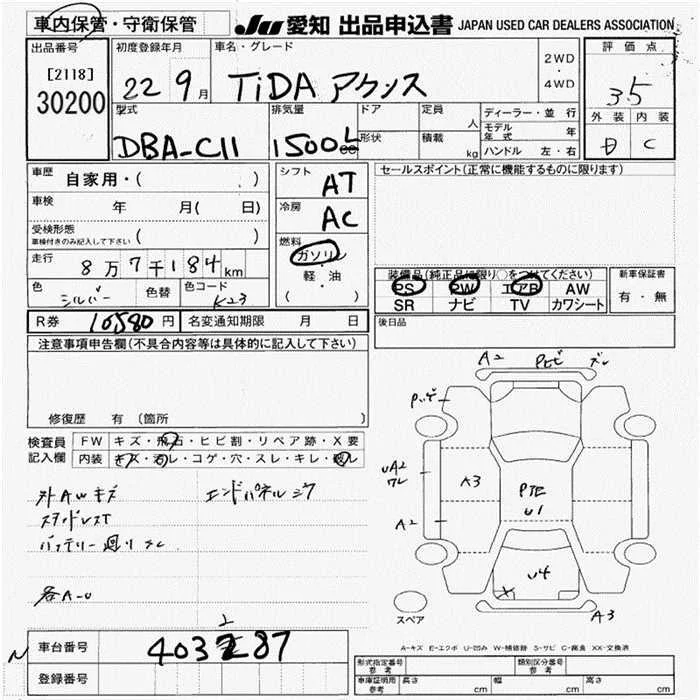 車内保管・守衛保管
JU 愛知 出品申込書 JAPAN USED CAR DEALERS ASSOCIATION
出品番号
[2118]
30200
初度登録年月
22 9月
車名・グレード
TiDA
2WD
・
4WD
評価点
3.5
外装 内装
C
型式
DBA-C11
排気量
1500 cc
ドア
形状
定員
人
積載
kg
ディーラー・並行
モデル年式 年
ハンドル 左・右
車歴 自家用・( )
車検 年 月( 日)
受検形態
車検付きのみ記入して下さい ( )
走行 8万7千184km
色 シルバー 色替 色コード K23
シフト AT
冷房 AC
燃料
ガソリン
軽・油
( ・ )
セールスポイント(正常に機能するものに限ります)
装備品(純正品に限り○をつけてください)
PS PW エアB AW
SR ナビ TV カワシート
新車保証書
有・無
R券 10,580円 名変通知期限 月 日
後日品
注意事項申告欄(不具合内容等は具体的に記入して下さい)
修復歴 有 (箇所 )
検査員
記入欄
FW キズ・飛石・ヒビ割・リペア跡・X要
内装 キズ・汚レ・コゲ・穴・スレ・キレ・破レ
外AWキズ
エンドパネル
各A-U
A2
A3
UA2
A2
U1
U4
A3
スペア
A-キズ E-エクボ U-凹み W-補修跡 S-サビ C-腐食 XX-交換済
車台番号 403287
2
N
登録番号
形式指定番号
参考
類別区分番号
参考
車庫証明用
参考
長さ cm 幅 cm 高さ cm